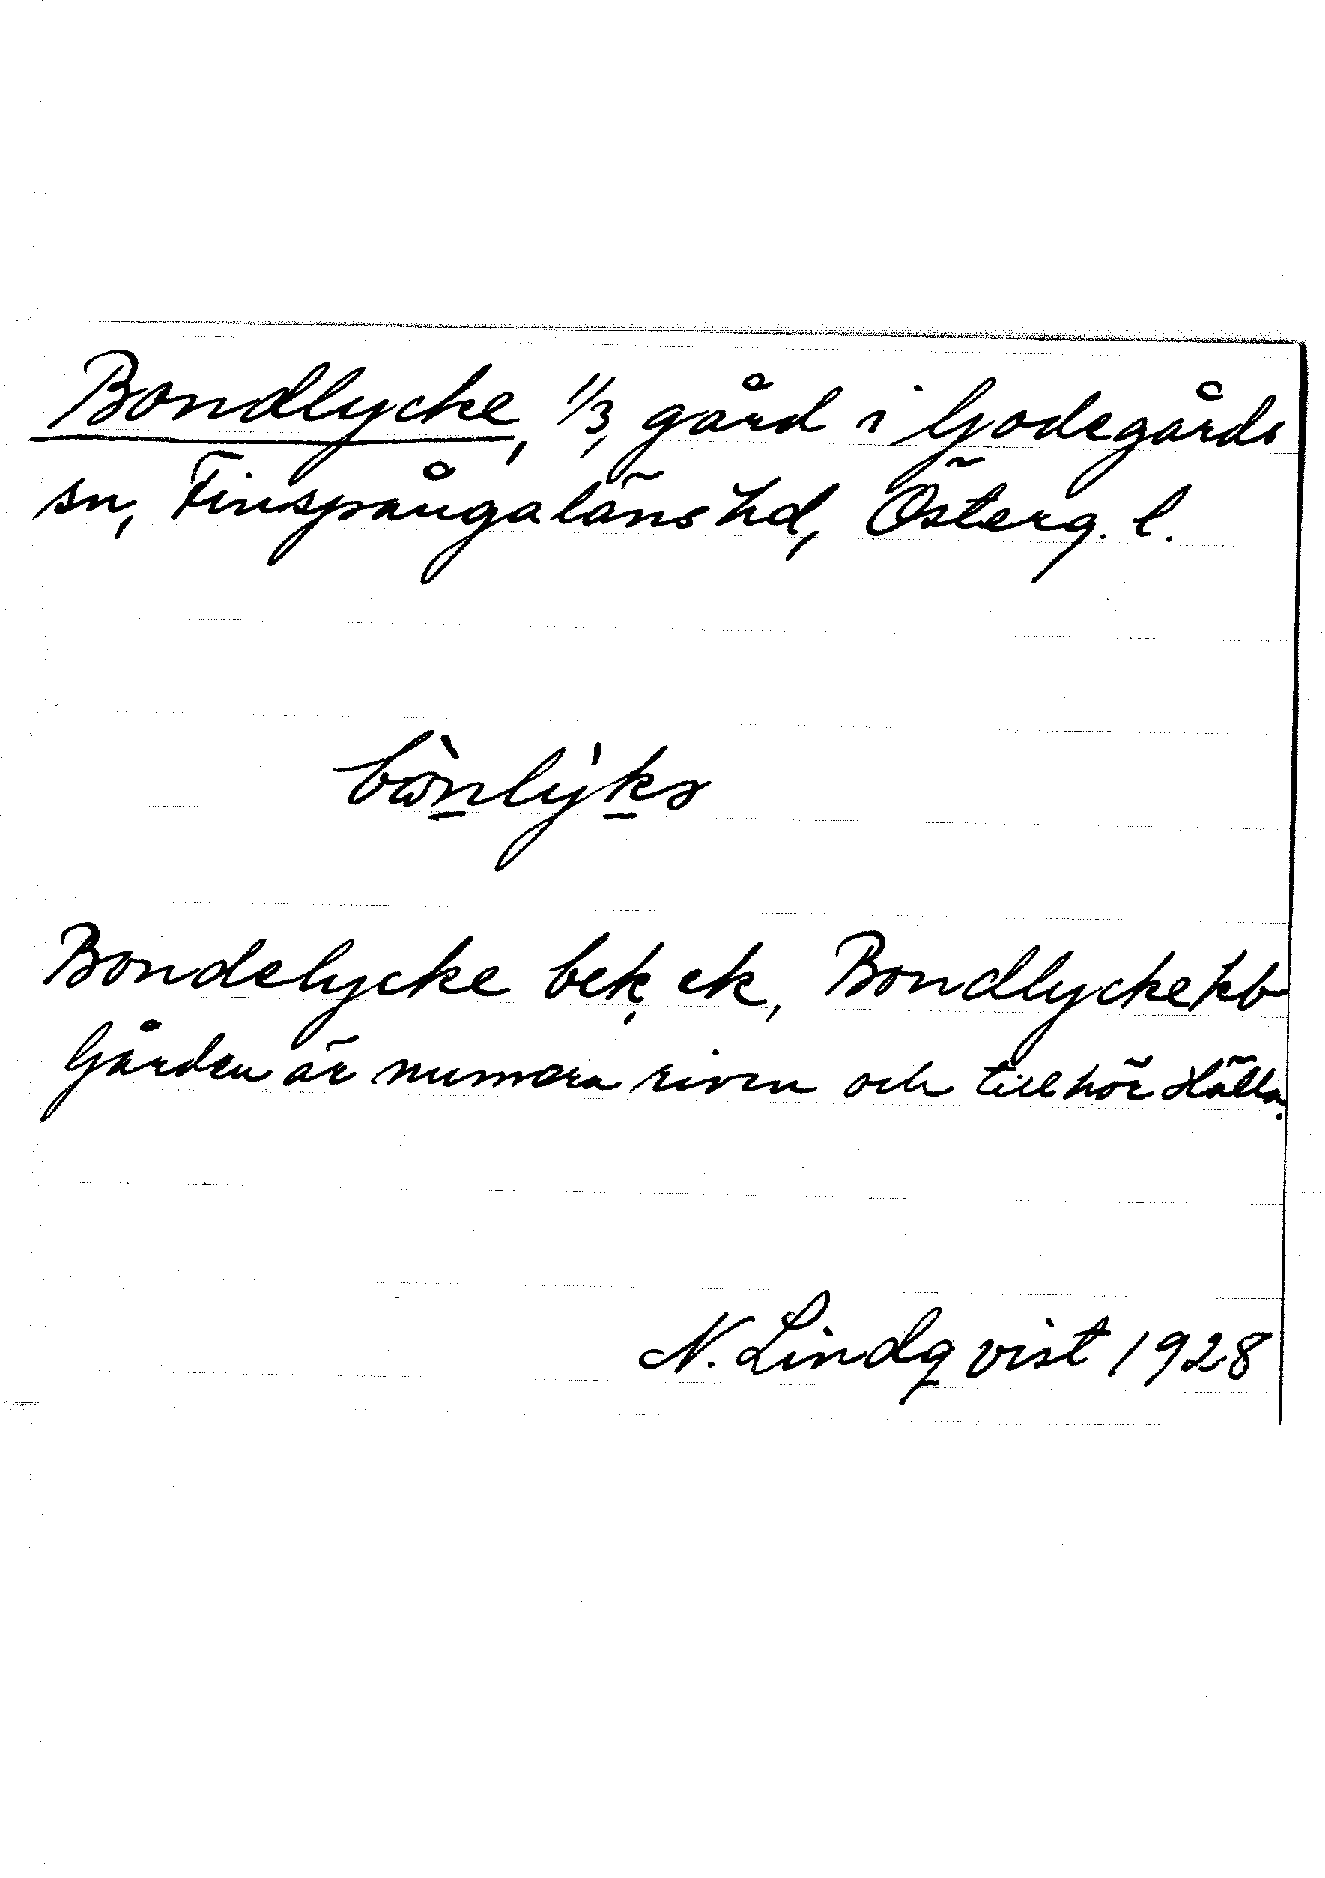 Bondlycke, 1/3, gård i Godegårds
sn, Finspångaläns hd, Österg. l.
bònlỳkə
Bondelycke bek, ek, Bondlycke kb
Gården är numera riven och tillhör Hälla.
N. Lindqvist 1928